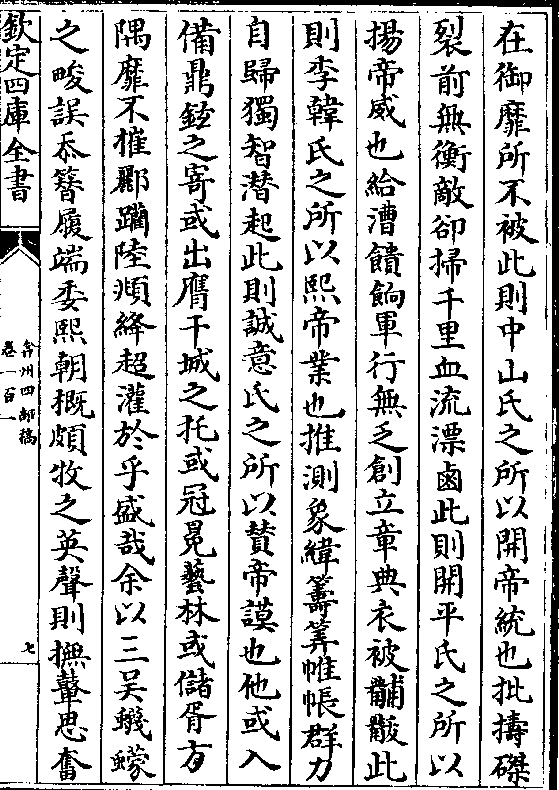 在御靡所不被此則中山氏之所以開帝統也批擣磔
裂前無衡敵卻掃千里血流漂鹵此則開平氏之所以
揚帝威也給漕饋餉軍行無乏創立章典衣被黼黻此
則李韓氏之所以熙帝業也推測象緯籌筭帷帳群力
自歸獨智潜起此則誠意氏之所以賛帝謨也他或入
備鼎鉉之寄或出膺干城之托或冠冕藝林或儲胥方
隅靡不摧酈躪陸頫絳超灌於乎盛哉余以三吴蠛蠓
之畯誤忝簪履端委熙朝概頗牧之英聲則撫鼙思奮
欽定四庫全書
弇州四部稿
卷一百一
七